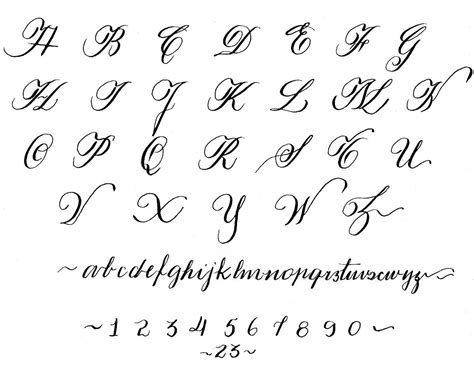 A B C D E F G
H I J K L M N
O P Q R S T U
V X Y W Z
~abcdefghijklmnopqrstuvxcwyz~
~1 2 3 4 5 6 7 8 9 0~
~23~